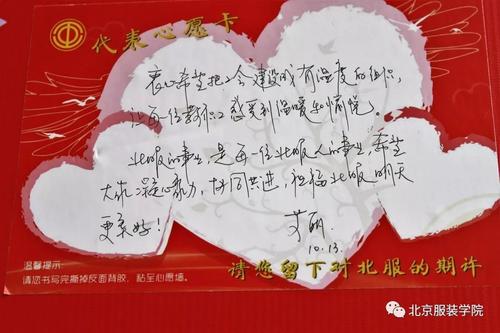 代表心愿卡
衷心希望把工会建设成有温度的组织,
让每一位教职工感受到温暖和愉悦。
北服的事业,是每一位北服人的事业,希望
大家凝心聚力,协同共进,祝福北服明天
更美好!
艾丽
10.13.
温馨提示:
请您书写完撕掉反面背胶,粘至心愿墙。
请您留下对北服的期许
北京服装学院